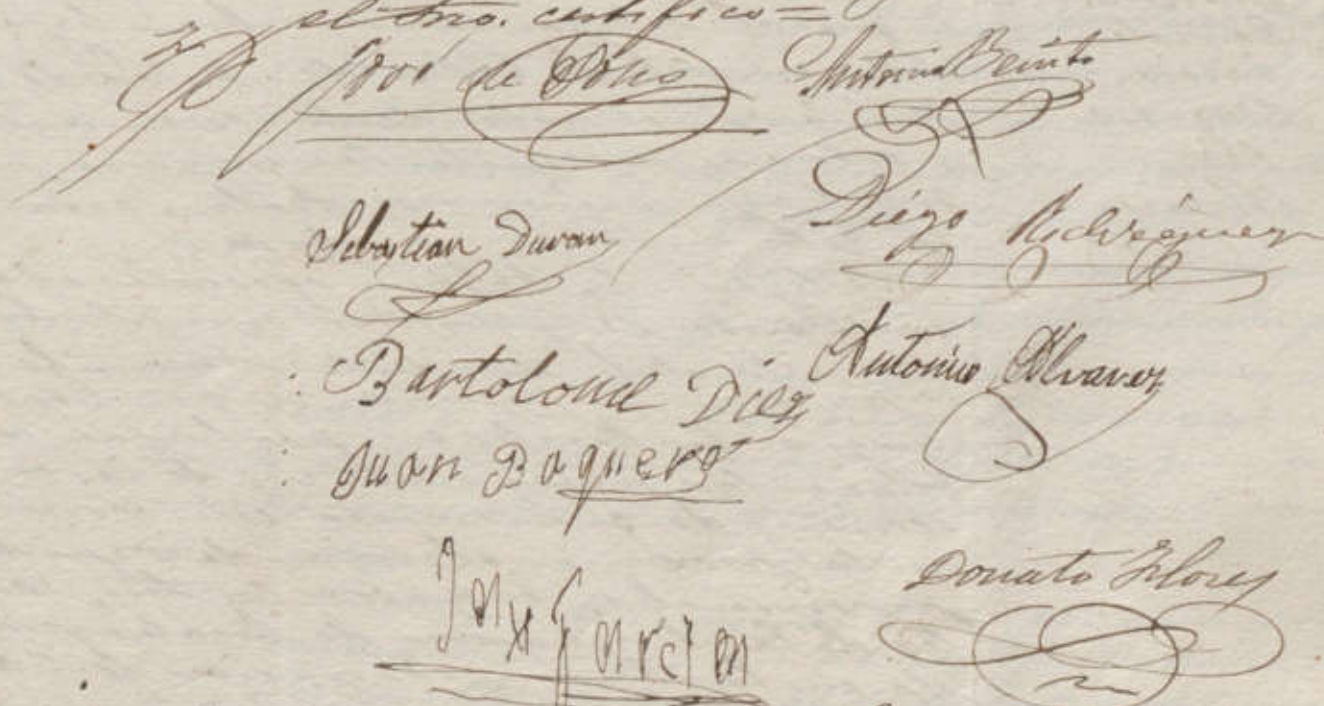 el Srio. certifico =
José de Dono Antonio Benito
Sebastian Duran Diego Rodriguez
Bartolome Diez Antonio Alvarez
Juan Baquero
Garcia Donato Flores